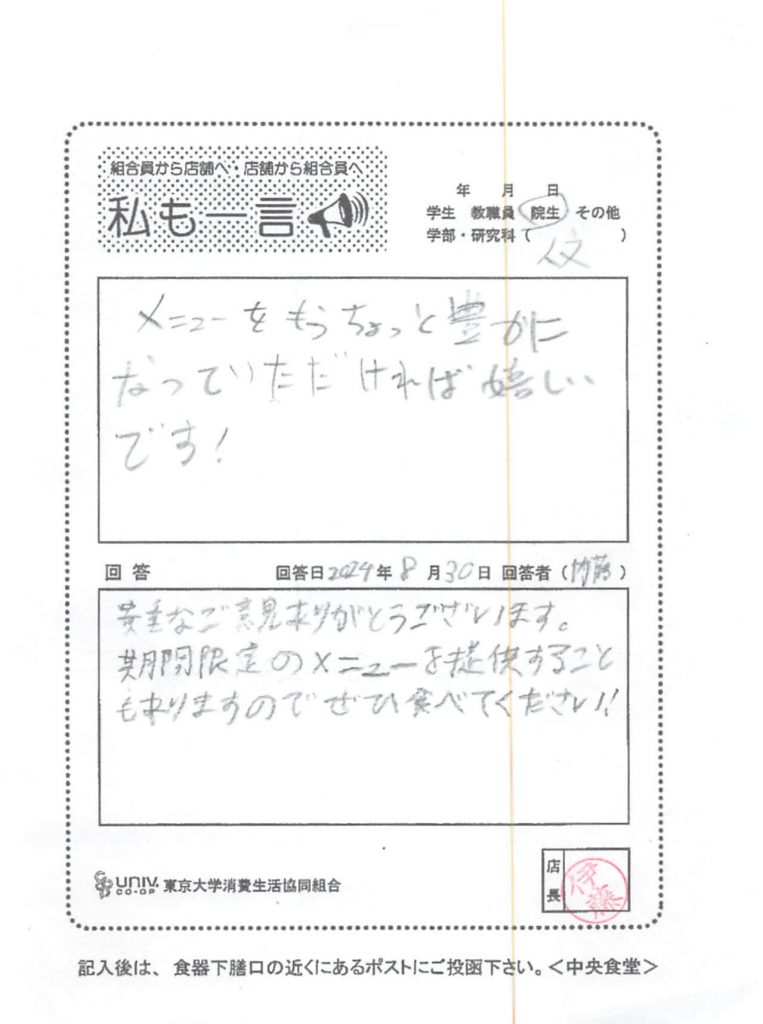 組合員から店舗へ・店舗から組合員へ
私も一言
年 月 日
学生 教職員 院生 その他
学部・研究科（ 人文 ）
メニューをもうちょっと豊かに
なっていただければ嬉しい
です！
回答 回答日2024年8月30日 回答者（内藤）
貴重なご意見ありがとうございます。
期間限定のメニューを提供すること
もありますのでぜひ食べてください！
UNIV. CO-OP 東京大学消費生活協同組合
店長 伊藤
記入後は、食器下膳口の近くにあるポストにご投函下さい。＜中央食堂＞